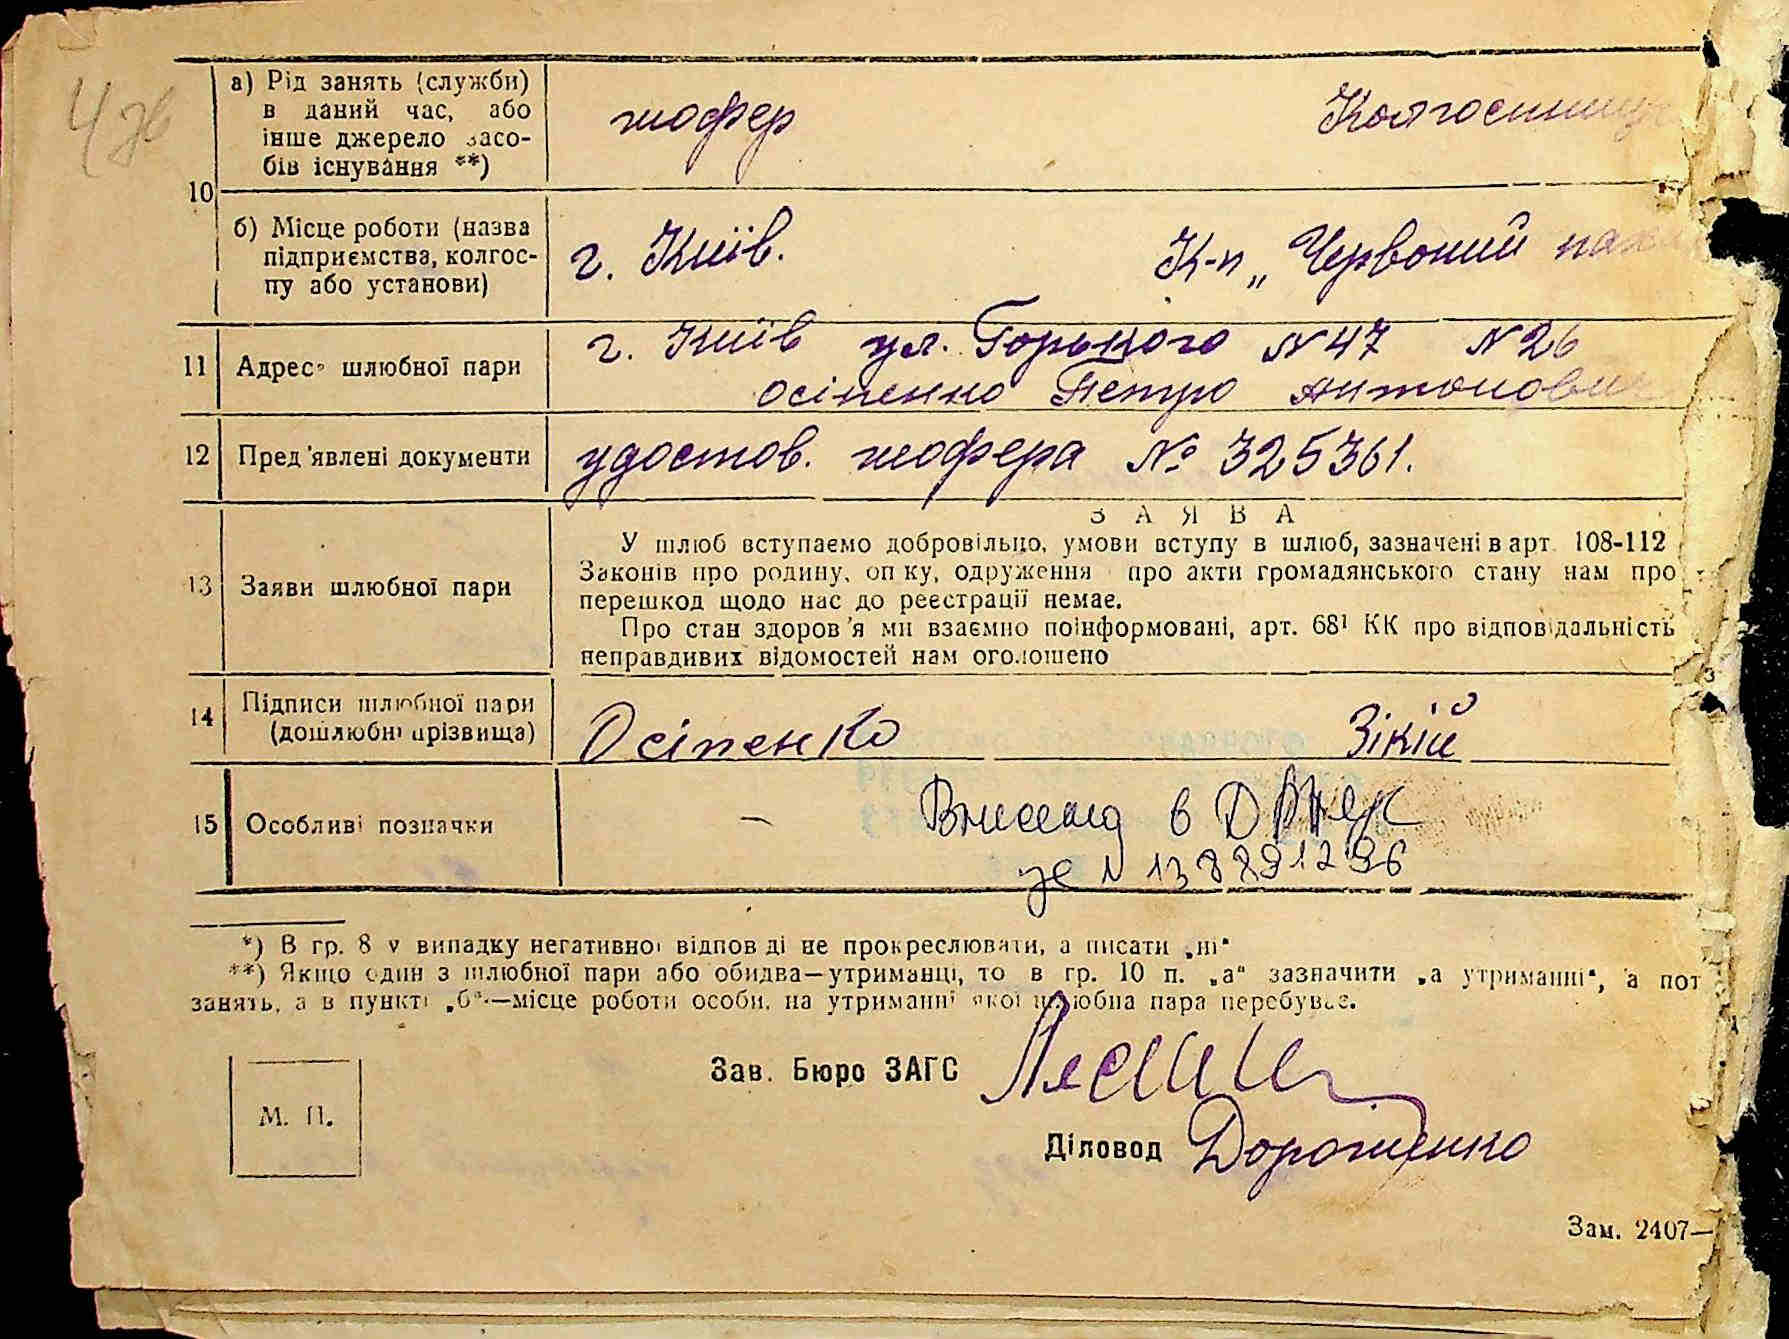 4 зв
10
а) Рід занять (служби) в даний час, або інше джерело засобів існування **)
шофер
Колгоспниця
б) Місце роботи (назва підприємства, колгоспу або установи)
г. Київ.
К-п „Червоний
11 Адрес шлюбної пари
г. Київ ул. Горького N 47 N 26
Осіпенко Петро Антонович
12 Пред'явлені документи
удостов. шофера № 325361.
13 Заяви шлюбної пари
ЗАЯВА
У шлюб вступаємо добровільно, умови вступу в шлюб, зазначені в арт. 108-112
Законів про родину, опіку, одруження про акти громадянського стану нам про
перешкод щодо нас до реєстрації немає.
Про стан здоров'я ми взаємно поінформовані, арт. 68¹ КК про відповідальність
неправдивих відомостей нам оголошено
14 Підписи шлюбної пари (дошлюбні прізвища)
Осіпенко
Зікій
15 Особливі позначки
—
Внесено в
за N
*) В гр. 8 у випадку негативної відповіді не прокреслювати, а писати „ні“
**) Якщо один з шлюбної пари або обидва—утриманці, то в гр. 10 п. „а“ зазначити „а утриманні“, а пот
занять, а в пункті „б“—місце роботи особи, на утриманні якої шлюбна пара перебуває.
Зав. Бюро ЗАГС
Діловод Дорошенко
М. П.
Зам. 2407—